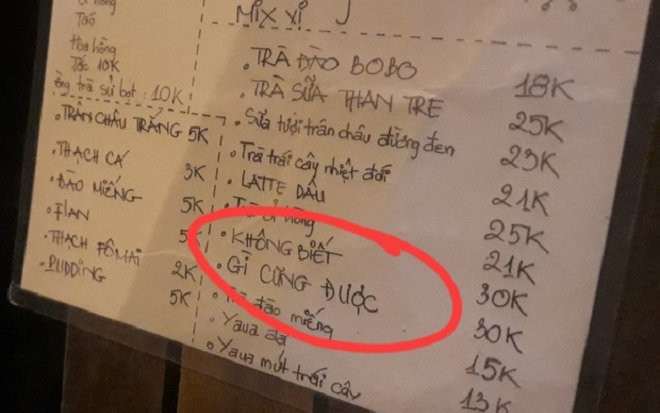 hồng
Táo
Hoa hồng
Tắc 10K
trà sủi bọt : 10K
TRÂN CHÂU TRẮNG 5K
THẠCH CÁ 3K
ĐÀO MIẾNG 5K
FLAN 5K
THẠCH FÔMAI 2K
PUDDING 5K
MIX VỊ
• TRÀ ĐÀO BOBO 18K
• TRÀ SỮA THAN TRE 25K
• Sữa tươi trân châu đường đen 23K
• Trà trái cây nhiệt đới 21K
• LATTE DÂU 25K
• Trà ổi hồng 21K
• KHÔNG BIẾT 30K
• GÌ CŨNG ĐƯỢC 30K
• Trà đào miếng 15K
• Yaua đá 13K
• Yaua mứt trái cây